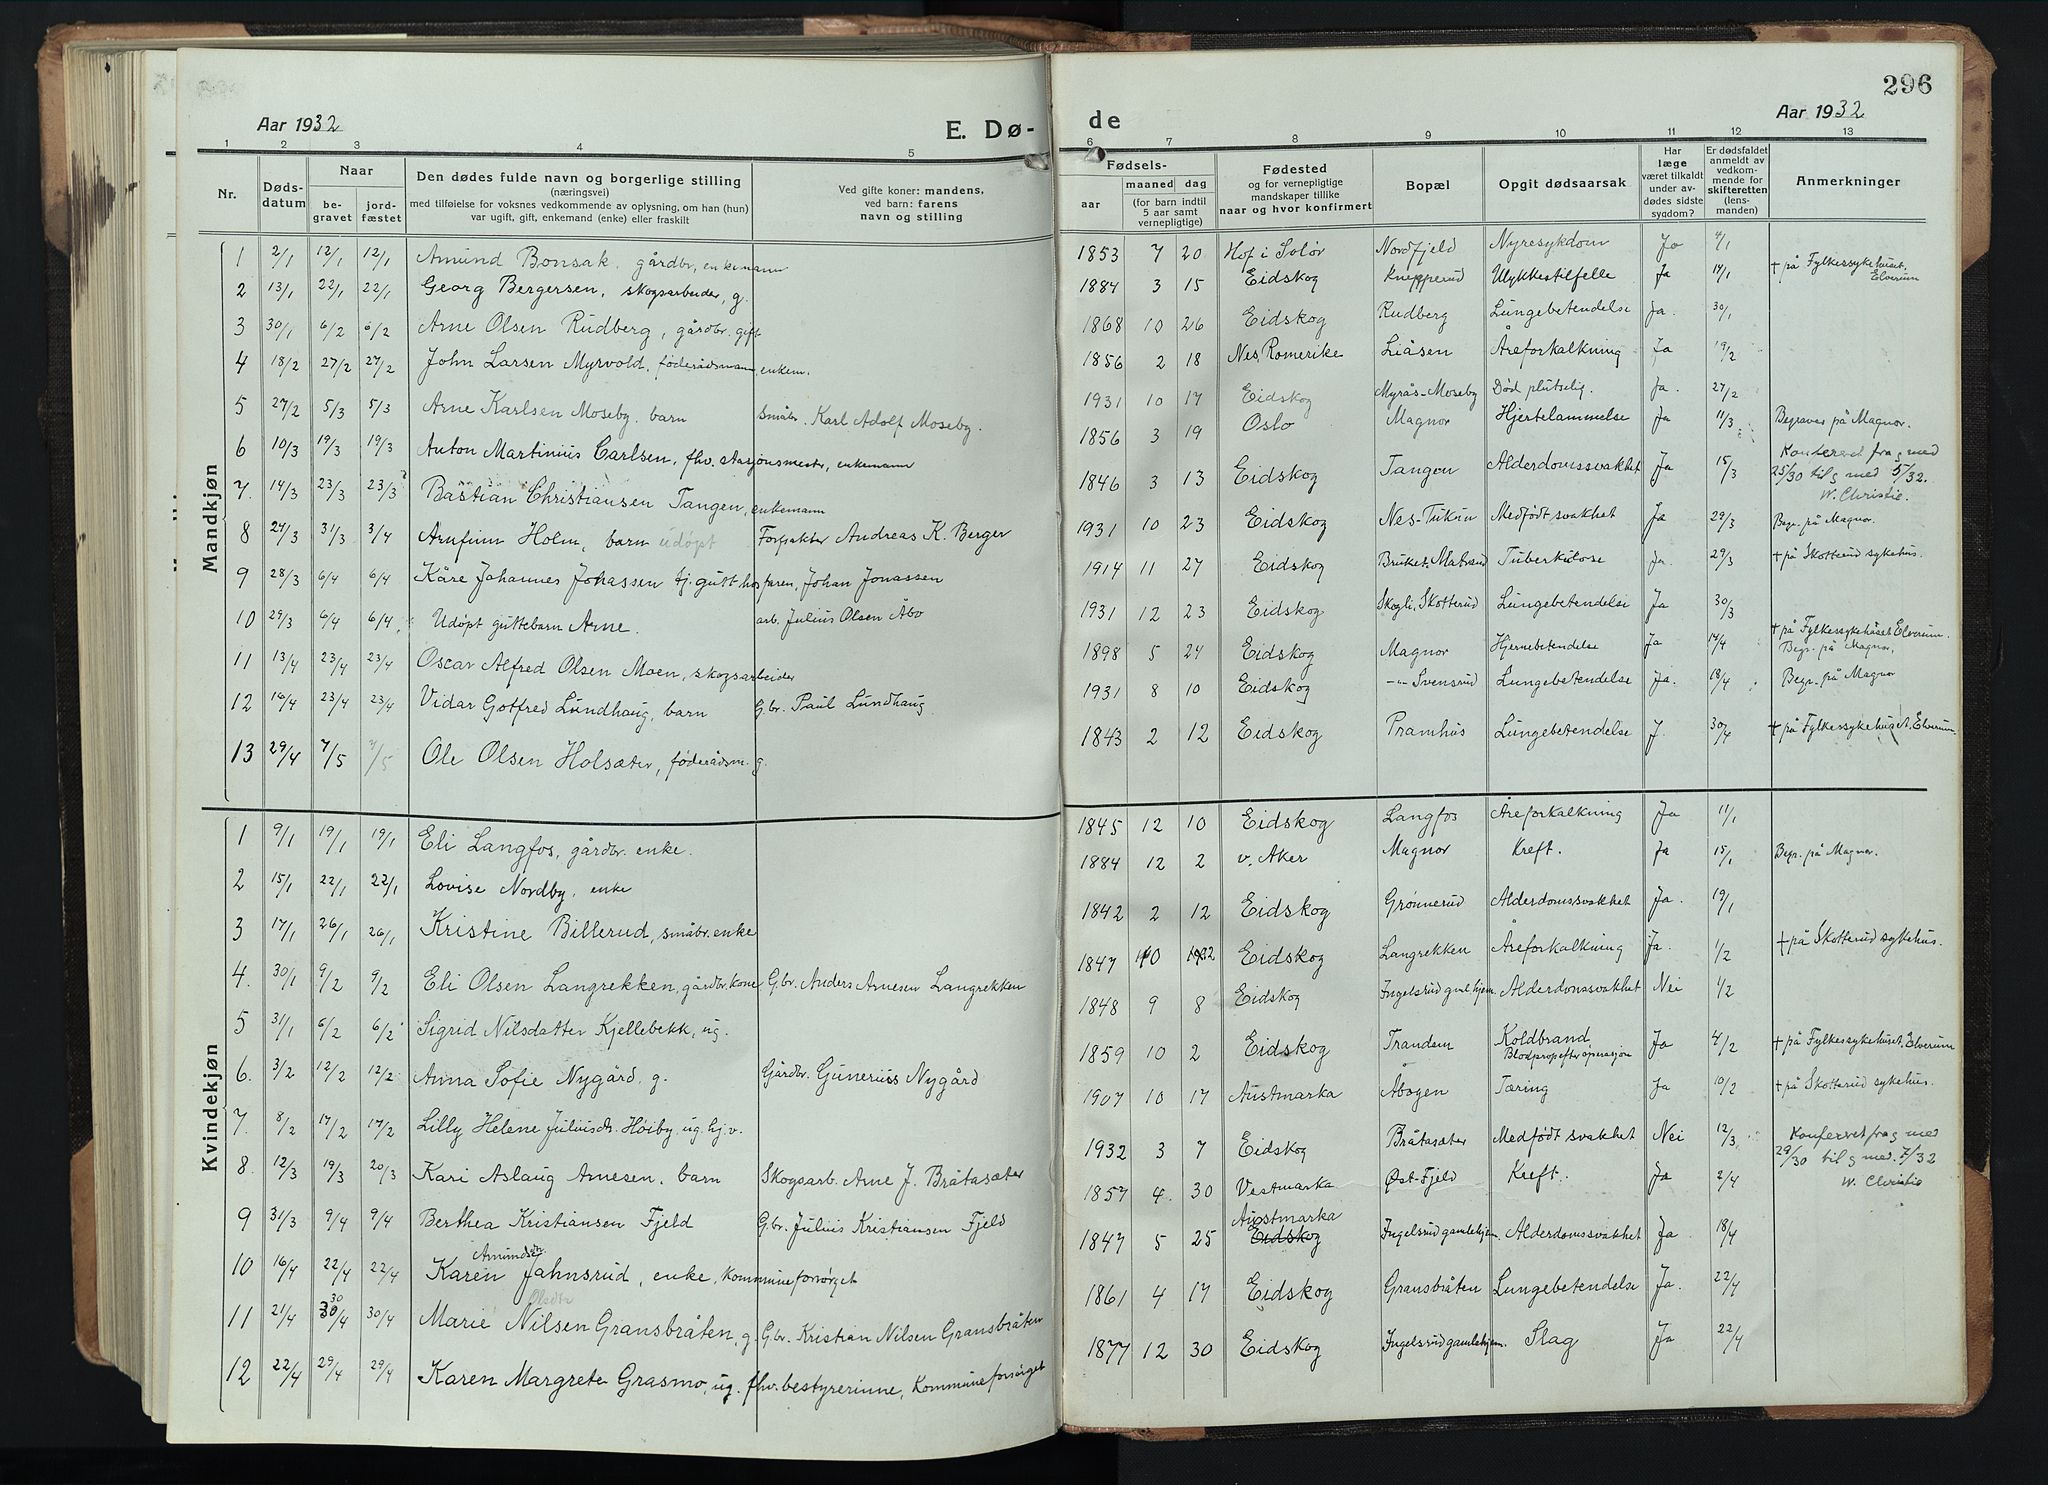 296
Aar 1932
E. Dø-
de
Aar 1932
1 2 3 4 5
6 7 8 9 10 11 12 13
Nr.
Døds-
datum
Naar
be-
gravet
jord-
fæstet
Den dødes fulde navn og borgerlige stilling
(næringsvei)
med tilføielse for voksnes vedkommende av oplysning, om han (hun)
var ugift, gift, enkemand (enke) eller fraskilt
Ved gifte koner: mandens,
ved barn: farens
navn og stilling
Fødsels-
aar
maaned
dag
(for barn indtil
5 aar samt
vernepligtige)
Fødested
og for vernepligtige
mandskaper tillike
naar og hvor konfirmert
Bopæl
Opgit dødsaarsak
Har
læge
været tilkaldt
under av-
dødes sidste
sygdom?
Er dødsfaldet
anmeldt av
vedkom-
mende for
skifteretten
(lens-
manden)
Anmerkninger
Mandkjøn
1 2/1 12/1 12/1 Amund Bonsak, gårdbr, enkemann 1853 7 20 Hof i Solør Nordfjeld Nyresykdom Ja 4/1
2 13/1 22/1 22/1 Georg Bergersen, skogsarbeider, g. 1884 3 15 Eidskog Knipperud Ulykkestilfelle Ja 14/1 + på Fylkessykehuset, Elverum
3 30/1 6/2 6/2 Arne Olsen Rudberg, gårdbr. gift 1868 10 26 Eidskog Rudberg Lungebetendelse Ja. 30/1
4 18/2 27/2 27/2 John Larsen Myrvold, føderådsmann, enkem. 1856 2 18 Nes, Romerike Liåsen Åreforkalkning Ja 19/2
5 27/2 5/3 5/3 Arne Karlsen Moseby, barn Småbr. Karl Adolf Moseby. 1931 10 17 Eidskog Myrås-Moseby Død plutselig. Ja. 27/2
6 10/3 19/3 19/3 Anton Martinius Carlsen, fhv. stasjonsmester, enkemann 1856 3 19 Oslo Magnor Hjertelammelse Ja 11/3 Begraves på Magnor.
7. 14/3 23/3 23/3 Bastian Christiansen Tangen, enkemann 1846 3 13 Eidskog Tangen Alderdomssvakhet Ja 15/3 Konferert fra g med
25/30 til g med 5/32.
W. Christie.
8 24/3 31/3 3/4 Arnfinn Holm, barn udøpt Forpakter Andreas K. Berger 1931 10 23 Eidskog Nes-Tukun Medfødt svakhet Ja 29/3 Begr. på Magnor.
9 28/3 6/4 6/4 Kåre Johannes Johassen tj. gutt hos faren, Johan Jonassen 1914 11 27 Eidskog Bruket, Matrand Tuberkulose Ja. 29/3 + på Skotterud sykehus.
10 29/3 6/4 6/4. Udøpt guttebarn Arne. arb. Julius Olsen Åbo 1931 12 23 Eidskog Skogli, Skotterud Lungebetendelse Ja 30/3
11 13/4 23/4 23/4 Oscar Alfred Olsen Moen, skogsarbeider 1898 5 24 Eidskog Magnor Hjernebetendelse Ja 14/4 + på Fylkessykehuset Elverum.
Begr. på Magnor,
12 16/4 23/4 23/4 Vidar Gotfred Lundhaug, barn G.br. Paul Lundhaug. 1931 8 10 Eidskog -"- Svensrud Lungebetendelse Ja. 18/4 Begr. på Magnor
13 29/4 7/5 7/5 Ole Olsen Holsæter, føderådsm. g. 1843 2 12 Eidskog Pramhus Lungebetendelse J. 30/4 + på Fylkessykehuset, Elverum.
Kvindekjøn
1 9/1 19/1 19/1 Eli Langfos, gårdbr. enke. 1845 12 10 Eidskog Langfos Åreforkalkning Ja 11/1
2 15/1 22/1 22/1 Lovise Nordby, enke 1884 12 2 v. Aker Magnor Kreft. Ja 15/1 Begr. på Magnor.
3 17/1 26/1 26/1 Kristine Billerud, småbr. enke 1842 2 12 Eidskog Grønnerud Alderdomssvakhet Ja. 19/1
4. 30/1 9/2 9/2 Eli Olsen Langrekken, gårdbr. kone G.br. Anders Arnesen Langrekken 1847 10 12 Eidskog Langrekken Åreforkalkning Ja. 1/2 + på Skotterud sykehus.
5 31/1 6/2 6/2 Sigrid Nilsdatter Kjellebekk, ug. 1848 9 8 Eidskog Ingelsrud gml.hjem. Alderdomssvakhet Nei 1/2
6. 3/2 12/2 12/2 Anna Sofie Nygård, g. Gårdbr. Gunerius Nygård 1859 10 2 Eidskog Trandem Koldbrand
Blodprop efter operasjon Ja 4/2 + på Fylkessykehuset, Elverum
7. 8/2 17/2 17/2 Lilly Helene Juliusdr. Høiby, ug. hj.v. 1907 10 17 Austmarka Åbogen Tæring Ja 10/2 + på Skotterud sykehus.
8. 12/3 19/3 20/3 Kari Aslaug Arnesen, barn Skogsarb. Arne J. Bråtasæter 1932 3 7 Eidskog Bråtasæter Medfødt svakhet Nei 12/3 Konferert fra g med
29/30 til g med. 7/32
W. Christie
9 31/3 9/4 9/4 Berthea Kristiansen Fjeld G.br. Julius Kristiansen Fjeld 1857 4. 30 Vestmarka Øst-Fjeld Kreft. Ja 2/4
10 16/4 22/4 22/4 Karen Amundsen Jahnsrud, enke, kommuneforsørget 1847 5 25 Austmarka Eidskog Ingelsrud gamlehjem. Alderdomssvakhet Ja. 18/4
11 21/4 30/4 30/4 Marie Olsdtr Nilsen Gransbråten, g. G.br. Kristian Nilsen Gransbråten 1861 4 17 Eidskog Gransbråten Lungebetendelse Ja. 22/4
12 22/4 29/4 29/4 Karen Margrete Grasmo, ug. fhv. bestyrerinne, kommuneforsørget 1877 12 30 Eidskog Ingelsrud gamlehjem. Slag Ja 22/4